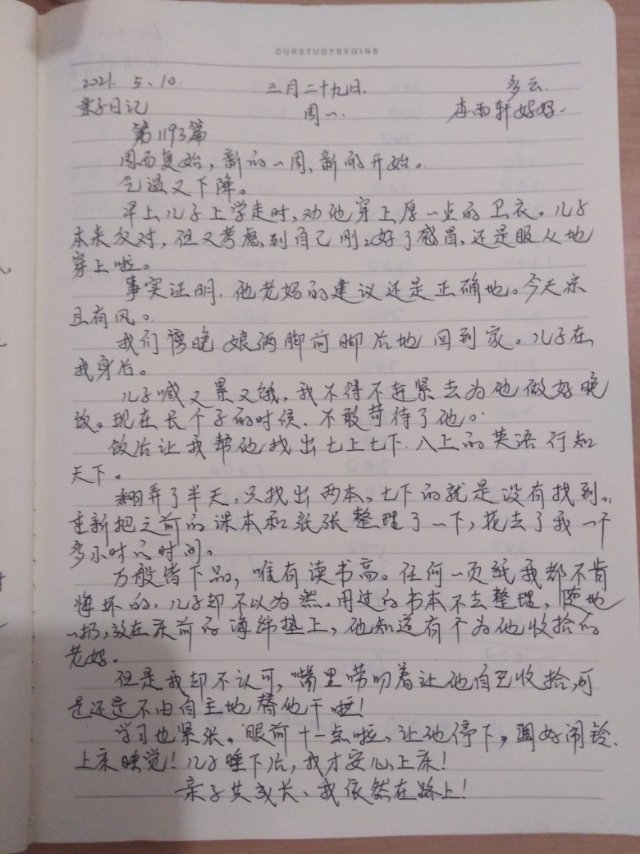 OURSTUDYBEGINS
2021. 5. 10. 三月二十九日. 多云.
亲子日记 周一. 李雨轩妈妈.
第1193篇
周而复始，新的一周，新的开始。
气温又下降。
早上儿子上学走时，劝他穿上厚一点的卫衣。儿子
本来反对，但又考虑到自己刚好了感冒，还是服从地
穿上啦。
事实证明，他老妈的建议还是正确地。今天凉
且有风。
我们傍晚娘俩脚前脚后地回到家。儿子在
我身后。
儿子喊又累又饿，我不得不赶紧去为他做好晚
饭。现在长个子的时候，不敢苛待了他。
饭后让我帮他找出七上七下.八上的英语行知
天下。
翻弄了半天，只找出两本。七下的就是没有找到。
重新把之前的课本和纸张整理了一下，花去了我一个
多小时的时间。
万般皆下品，唯有读书高。任何一页纸我都不肯
毁坏的，儿子却不以为然。用过的书本不去整理，随地
一扔，放在床前的海绵垫上，他知道有个为他收拾的
老妈。
但是我却不认可，嘴里唠叨着让他自己收拾，可
是还是不由自主地替他干啦！
学习也紧张。眼前十一点啦，让他停下，调好闹铃.
上床睡觉！儿子睡下后，我才安心上床！
亲子共成长、我依然在路上！